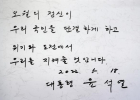 오월의 정신이
우리 국민을 단결하게 하고
위기와 도전에서
우리를 지켜줄 것입니다
2022. 5. 18
대통령 윤석열